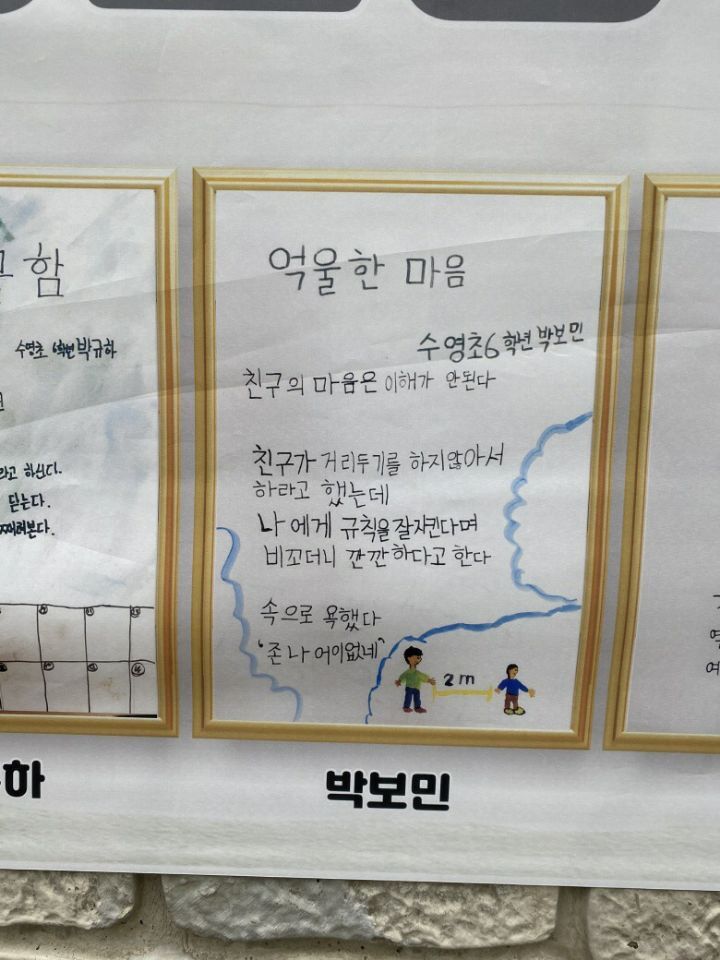 함
수영초 6학년 박규하
라고 하신다.
듣는다.
째려본다.
하
억울한 마음
수영초6학년 박보민
친구의 마음은 이해가 안된다
친구가 거리두기를 하지않아서
하라고 했는데
나에게 규칙을잘지킨다며
비꼬더니 깐깐하다고 한다
속으로 욕했다
‘존나 어이없네”
2m
박보민